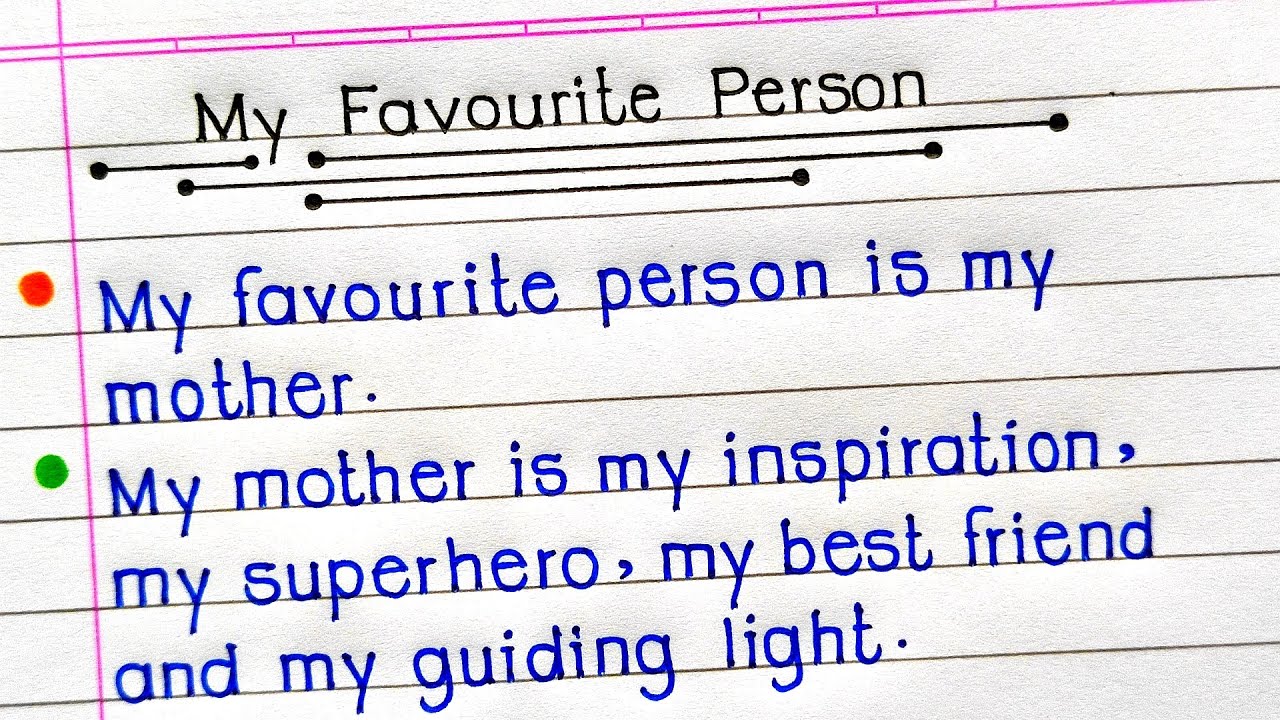 My Favourite Person
My favourite person is my
mother.
My mother is my inspiration,
my superhero, my best friend
and my guiding light.